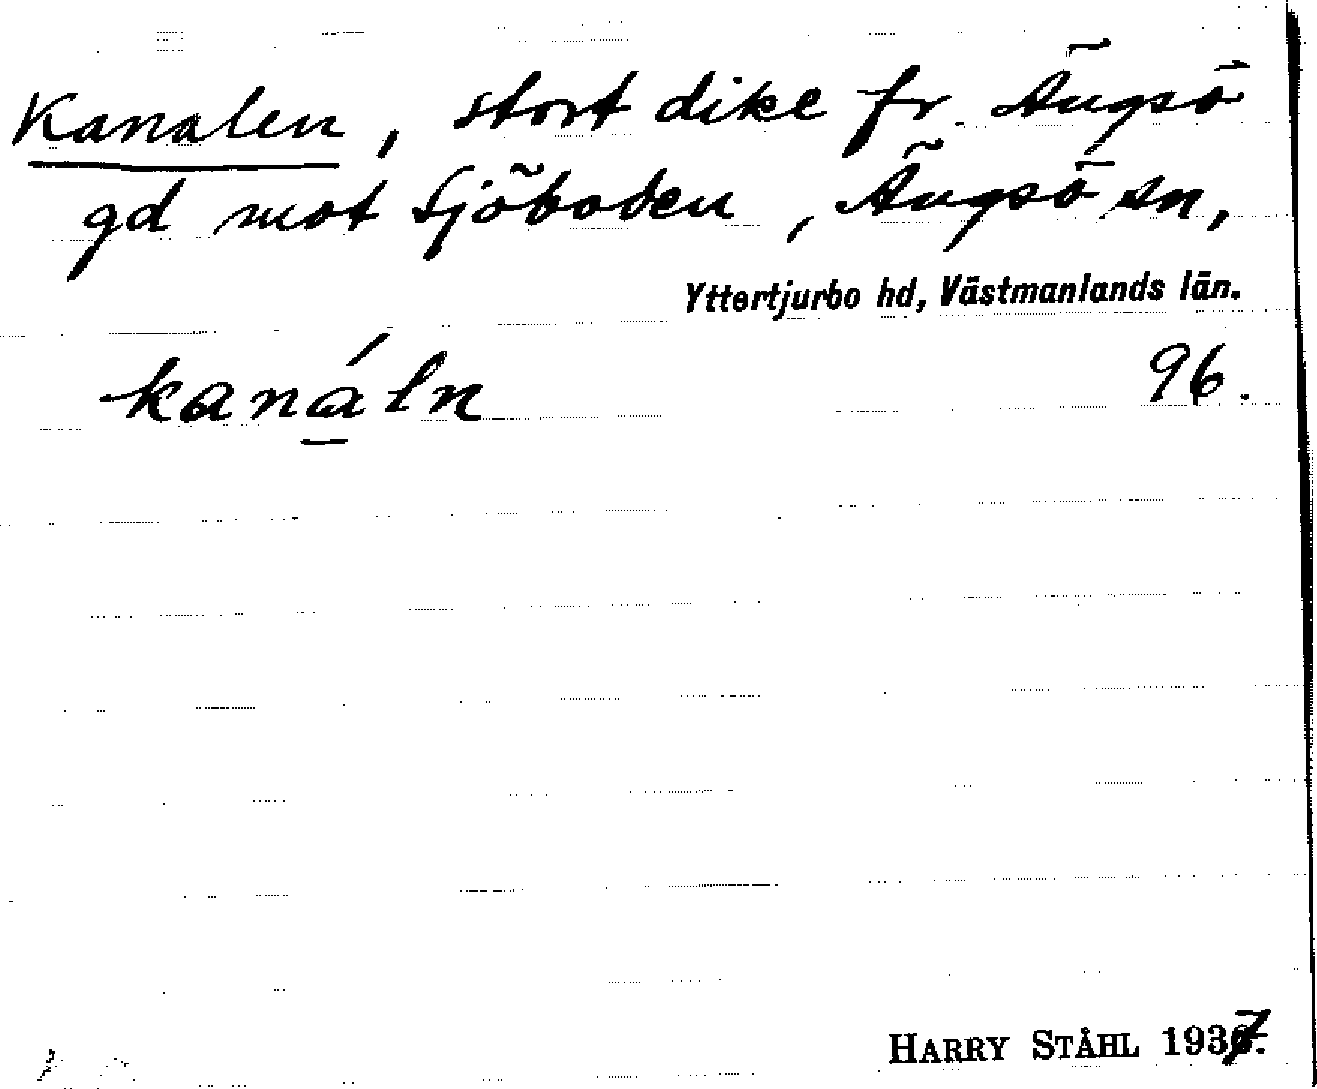 Kanalen, stort dike fr. Ängsö
gd mot Sjöboden, Ängsö sn,
Yttertjurbo hd, Västmanlands län.
kanáln 96.
HARRY STÅHL 1937.